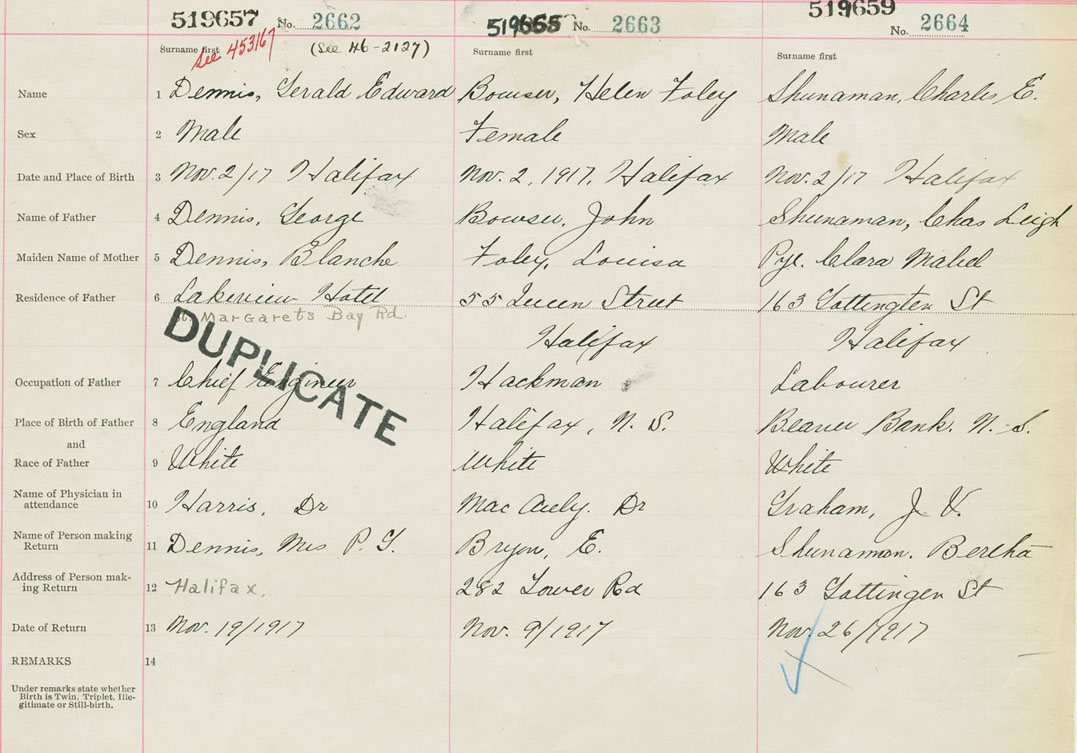 519657 No. 2662 No. 2663 519659 No. 2664
Surname first Surname first Surname first
See 453167 (See 46-2127)
Name 1 Dennis, Gerald Edward Bowser, Helen Foley Shunaman, Charles E.
Sex 2 Male Female Male
Date and Place of Birth 3 Nov. 2/17 Halifax Nov. 2, 1917. Halifax Nov. 2/17 Halifax
Name of Father 4 Dennis, George Bowser, John Shunaman, Chas Leigh
Maiden Name of Mother 5 Dennis, Blanche Foley, Louisa Pye. Clara Mabel
Residence of Father 6 Lakeview Hotel 55 Queen Street 163 Gottingten St
Margarets Bay Rd. Halifax Halifax
DUPLICATE
Occupation of Father 7 Chief Engineer Hackman Labourer
Place of Birth of Father 8 England Halifax, N. S. Beaver Bank. N. S.
and
Race of Father 9 White White White
Name of Physician in
attendance 10 Harris, Dr Mac Auly. Dr Graham, J. V.
Name of Person making
Return 11 Dennis, Mrs P. G. Bryon, E. Shunaman. Bertha
Address of Person mak-
ing Return 12 Halifax, 282 Tower Rd 163 Gottingen St
Date of Return 13 Nov. 19/1917 Nov. 9/1917 Nov. 26/1917
REMARKS 14
Under remarks state whether
Birth is Twin. Triplet, Ille-
gitimate or Still-birth.